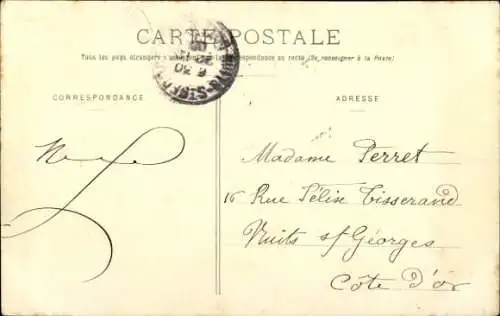 CARTE POSTALE
Tous les pays étrangers n'acceptent pas la correspondance au recto (Se renseigner à la Poste)
CORRESPONDANCE
ADRESSE
Madame Perret
16 Rue Félix Tisserand
Nuits s/ Géorges
Côte d'Or